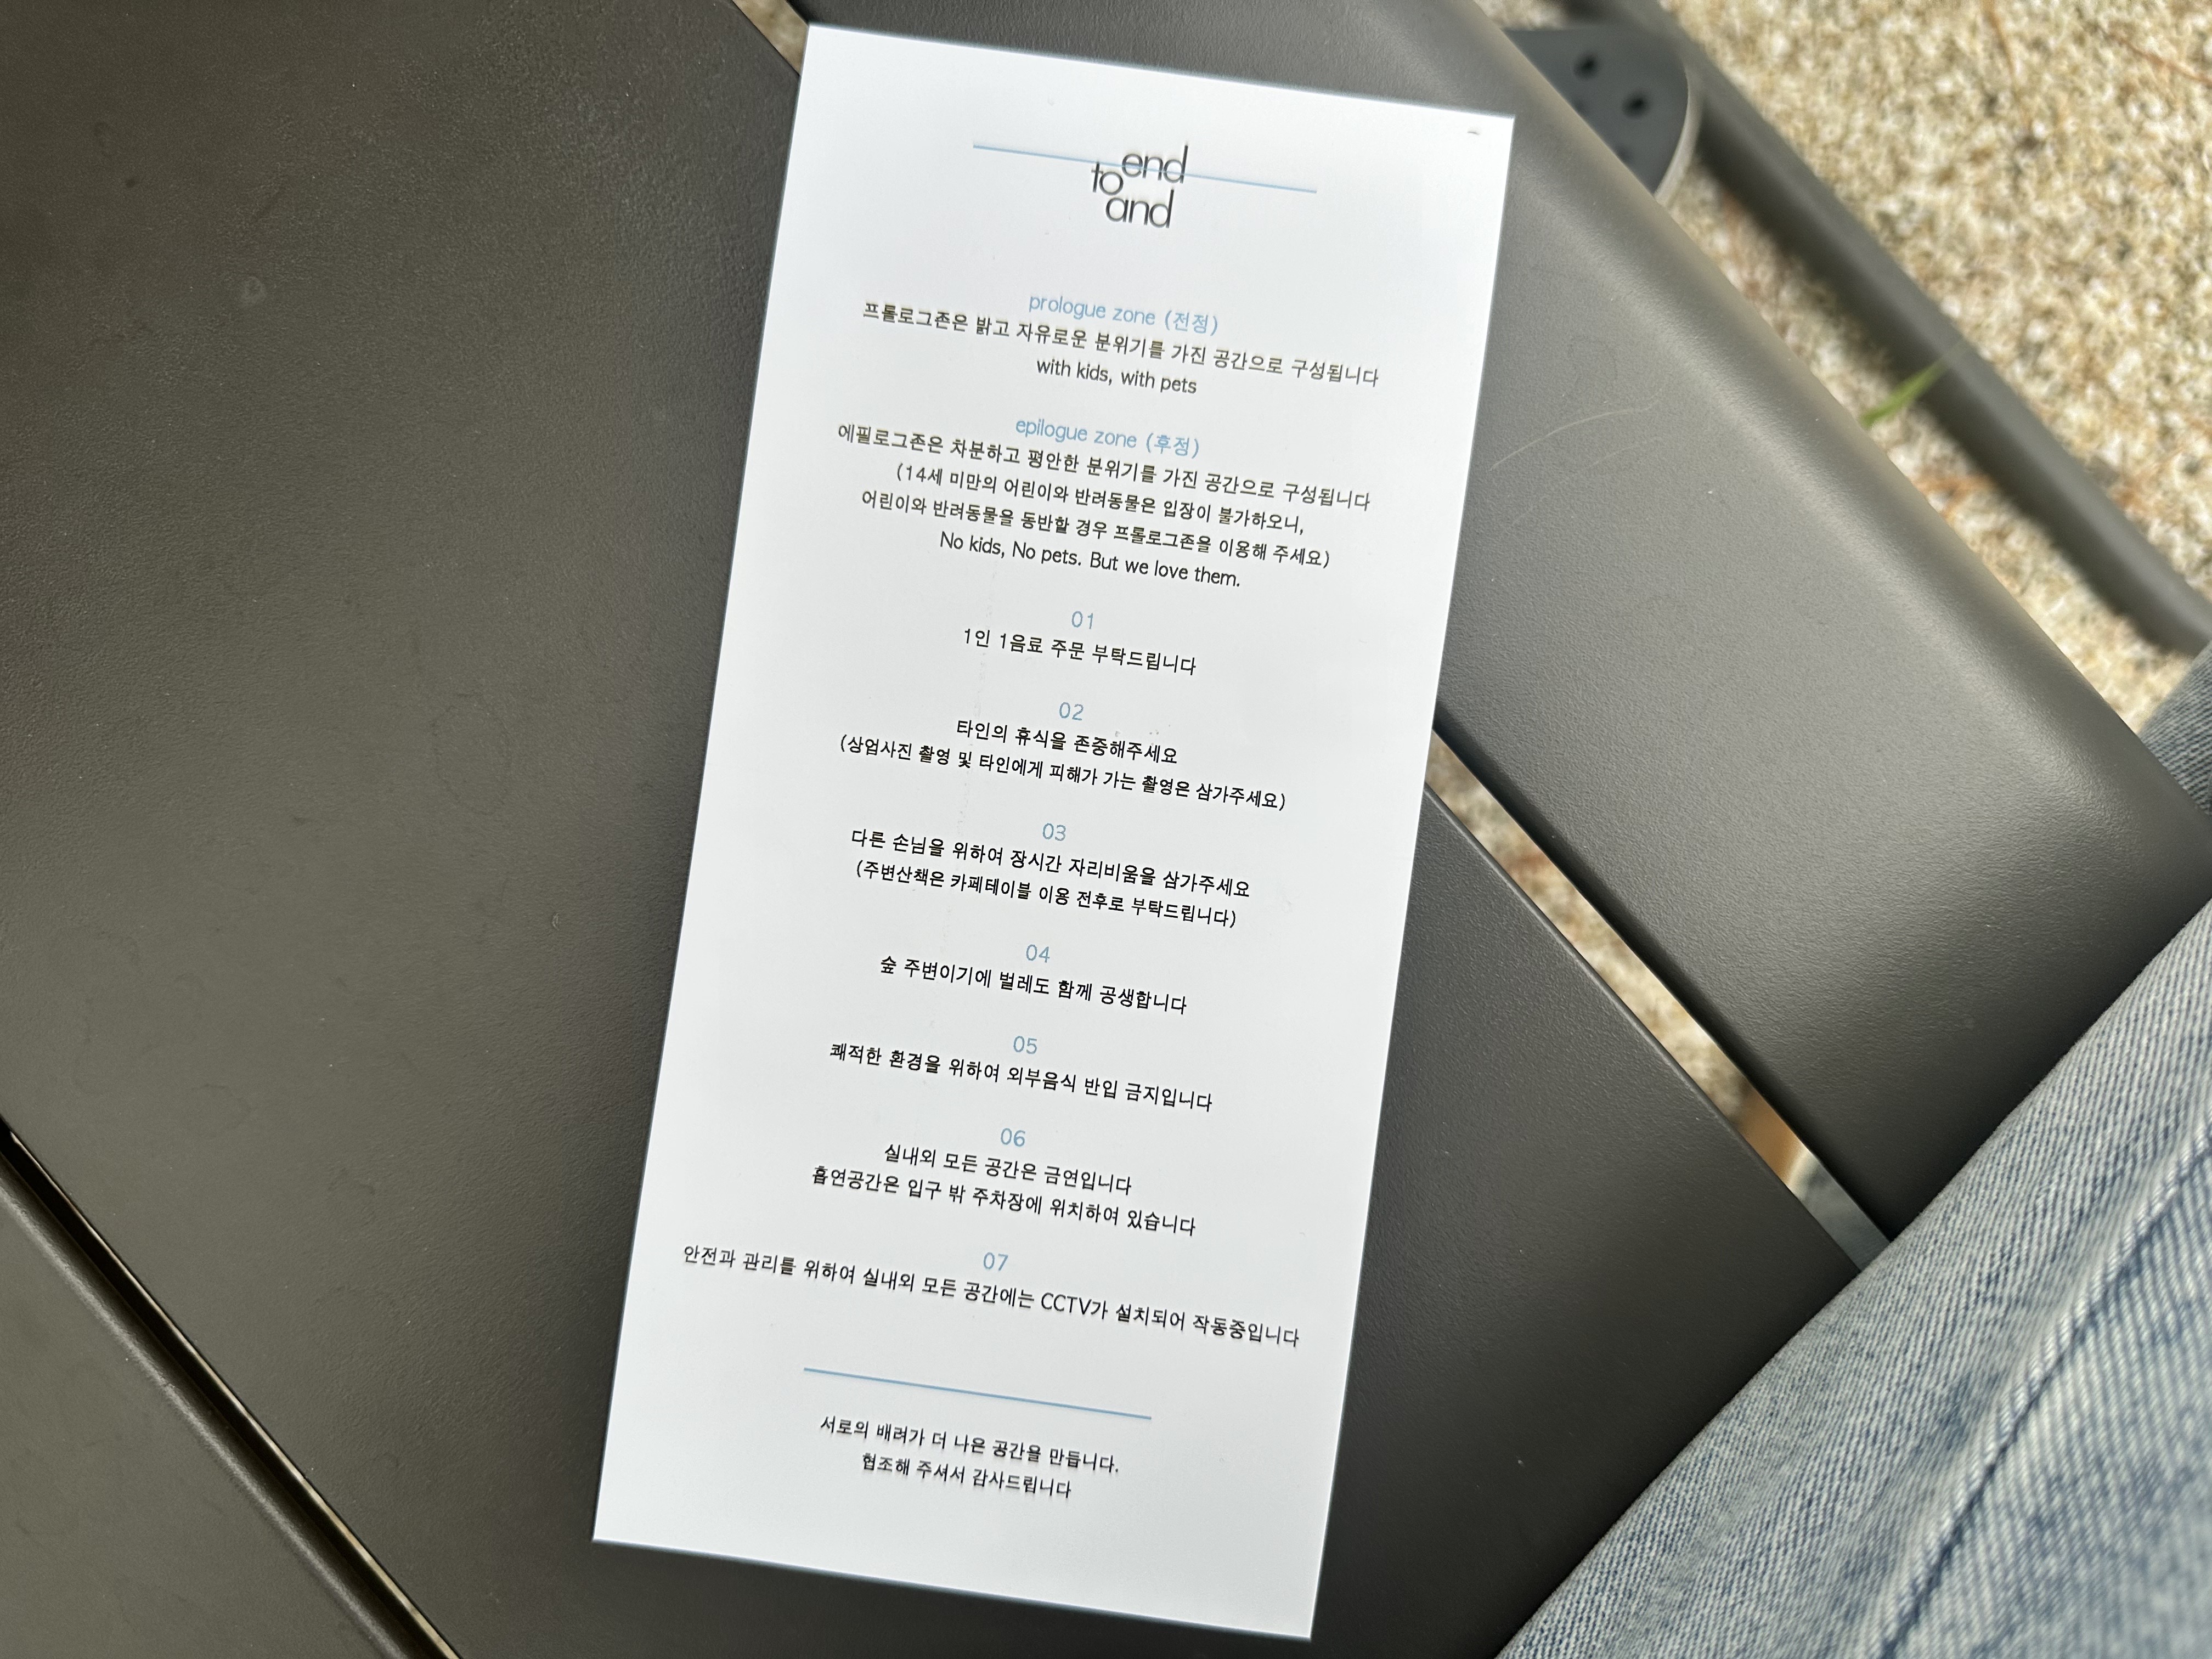 end
to
and
prologue zone (전정)
프롤로그존은 밝고 자유로운 분위기를 가진 공간으로 구성됩니다
with kids, with pets
epilogue zone (후정)
에필로그존은 차분하고 평안한 분위기를 가진 공간으로 구성됩니다
(14세 미만의 어린이와 반려동물은 입장이 불가하오니,
어린이와 반려동물을 동반할 경우 프롤로그존을 이용해 주세요)
No kids, No pets. But we love them.
01
1인 1음료 주문 부탁드립니다
02
타인의 휴식을 존중해주세요
(상업사진 촬영 및 타인에게 피해가 가는 촬영은 삼가주세요)
03
다른 손님을 위하여 장시간 자리비움을 삼가주세요
(주변산책은 카페테이블 이용 전후로 부탁드립니다)
04
숲 주변이기에 벌레도 함께 공생합니다
05
쾌적한 환경을 위하여 외부음식 반입 금지입니다
06
실내외 모든 공간은 금연입니다
흡연공간은 입구 밖 주차장에 위치하여 있습니다
07
안전과 관리를 위하여 실내외 모든 공간에는 CCTV가 설치되어 작동중입니다
서로의 배려가 더 나은 공간을 만듭니다.
협조해 주셔서 감사드립니다